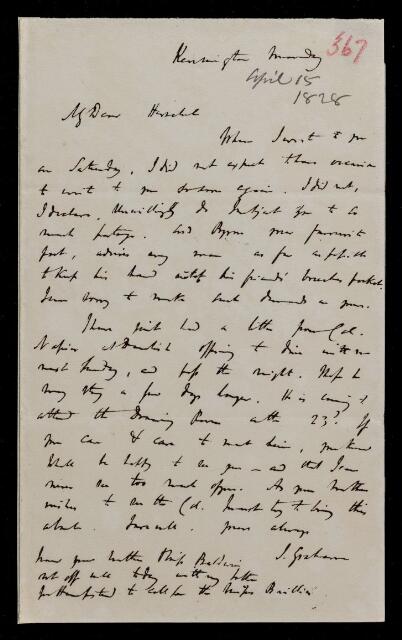 367
Kensington Monday
April 15
1828
My Dear Herschel
When I wrote to you
on Saturday, I did not expect to have occasion
to write to you so soon again. I did not,
I declare, unwillingly subject you to so
much postage. Lord Byron your favourite
poet, advises any man as far as possible
to keep his hand out of his friends' breeches pocket.
I am sorry to make such demands on yours.
I have just had a letter from Col.
Napier offering to dine with us
next Sunday, and pass the night.
may stay a few days longer. He is coming to
attend the Drawing Room on the 23d. If
you can & care to meet him, you know
I shall be happy to see you – and that I can
never see too much of you. As your mother
wishes to see the Col. I must try to bring this
about. Farewell. yours always
J. Graham
your mother & Miss Baldwin
set off well today with my
to call for the Misses Baillie